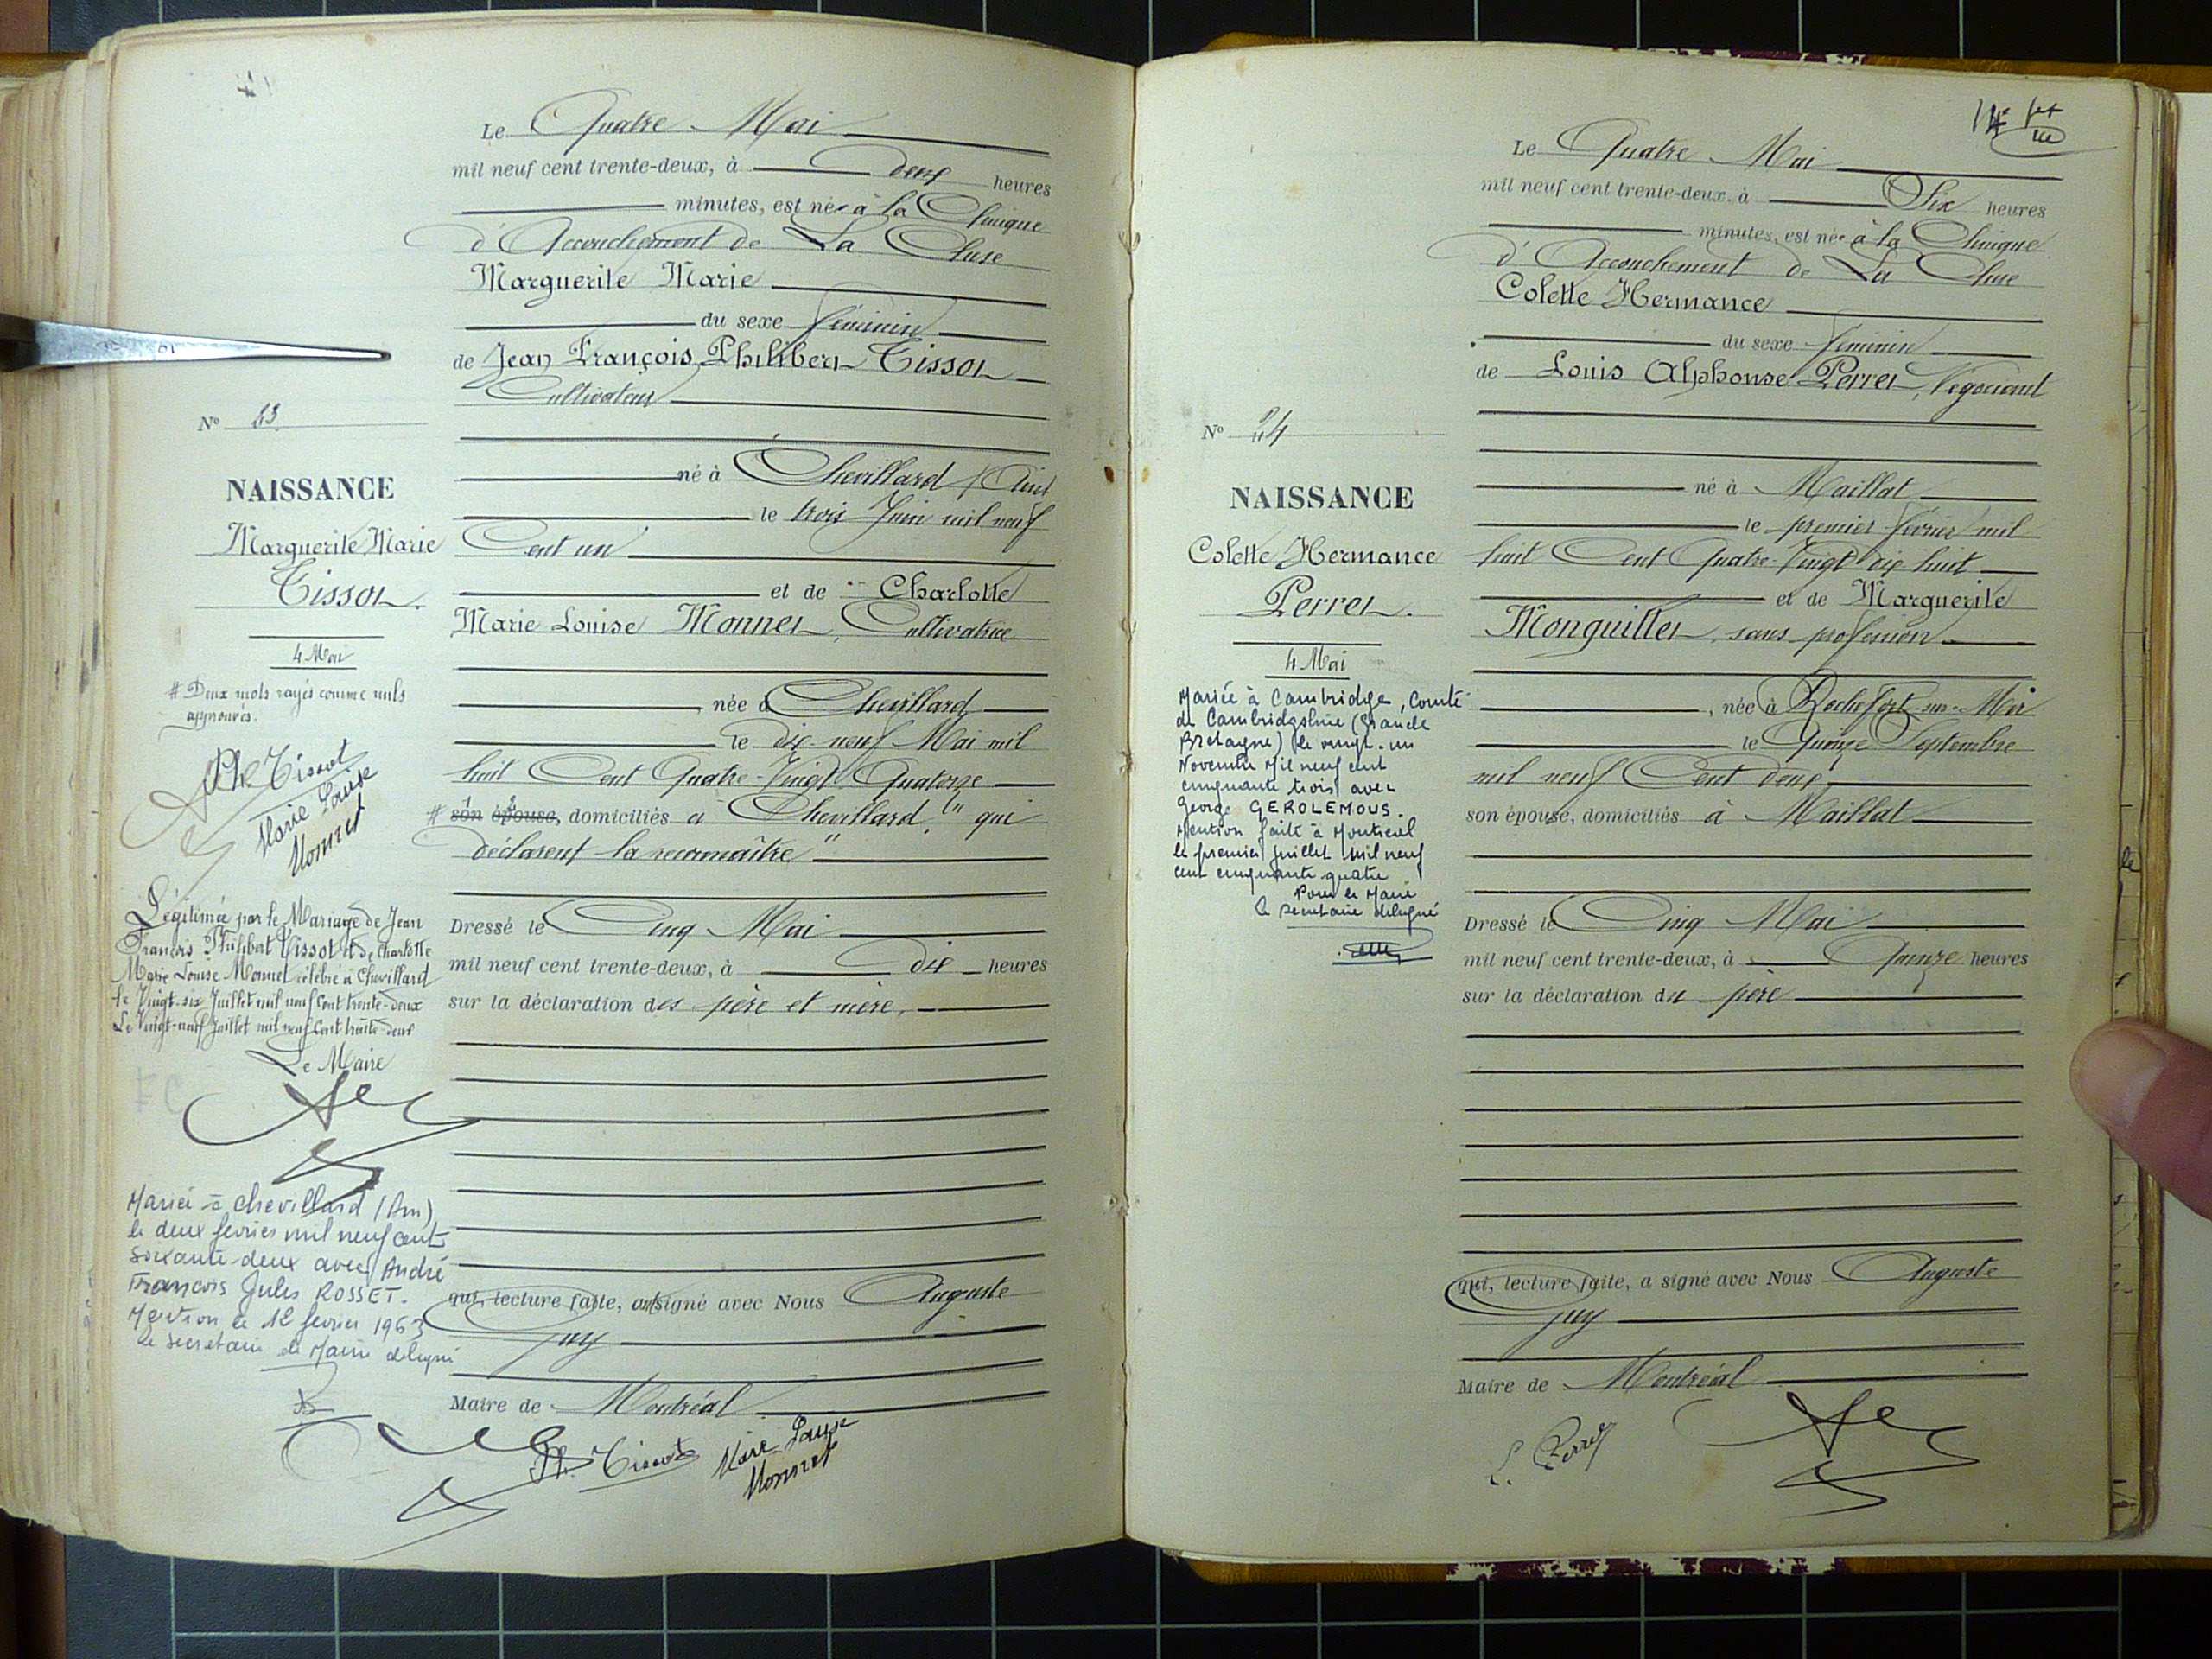 Le Quatre Mai
mil neuf cent trente-deux, à deux heures
minutes, est née à la Clinique
d'Accouchement de La Cluse
Marguerite Marie
du sexe féminin
de Jean François Philibert Tissot
Cultivateur
né à Chevillard (Ain)
le trois Juin mil neuf
Cent un
et de Charlotte
Marie Louise Monnet, Cultivatrice
née à Chevillard
le dix neuf Mai mil
huit Cent Quatre-Vingt Quatorze
# son épouse, domiciliés à Chevillard, "qui
déclarent la reconnaître"
Dressé le Cinq Mai
mil neuf cent trente-deux, à dix heures
sur la déclaration des père et mère,
qui, lecture faite, ont signé avec Nous Auguste
Guy
Maire de Montréal
Ph. Tissot Marie Louise
Monnet
N° 23
NAISSANCE
Marguerite Marie
Tissot.
4 Mai
# Deux mots rayés comme nuls
approuvés.
Ph. Tissot
Marie Louise
Monnet
Légitimée par le Mariage de Jean
François Philibert Tissot et de Charlotte
Marie Louise Monnet célébré à Chevillard
le Vingt-six Juillet mil neuf Cent trente-deux
Le Vingt-neuf Juillet mil neuf Cent trente-deux
Le Maire
Mariée à Chevillard (Ain)
le deux fevrier mil neuf cent
soixante-deux avec André
François Jules ROSSET.
Mention le 12 fevrier 1963
le secretaire de Mairie délégué
14e fet
Le Quatre Mai
mil neuf cent trente-deux, à Six heures
minutes, est née à la Clinique
d'Accouchement de La Cluse
Colette Hermance
du sexe féminin
de Louis Alphonse Perret, Négociant
né à Maillat
le premier février mil
huit Cent Quatre-Vingt dix huit
et de Marguerite
Monguillet, sans profession
, née à Rochefort-sur-Mer
le Quinze Septembre
mil neuf Cent deux,
son épouse, domiciliés à Maillat
Dressé le Cinq Mai
mil neuf cent trente-deux, à Quinze heures
sur la déclaration du père
qui, lecture faite, a signé avec Nous Auguste
Guy
Maire de Montréal
L. Perret
N° 24
NAISSANCE
Colette Hermance
Perret.
4 Mai
Mariée à Cambridge, Comté
de Cambridgshire (Grande
Bretagne) le vingt-un
Novembre Mil neuf cent
cinquante trois avec
George GEROLEMOUS.
Mention faite à Montreal
le premier juillet mil neuf
cent cinquante quatre
Pour le Maire
le secretaire délégué